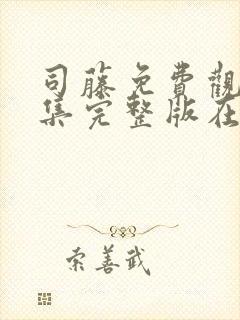 司藤免費觀
集完整版在
索善武